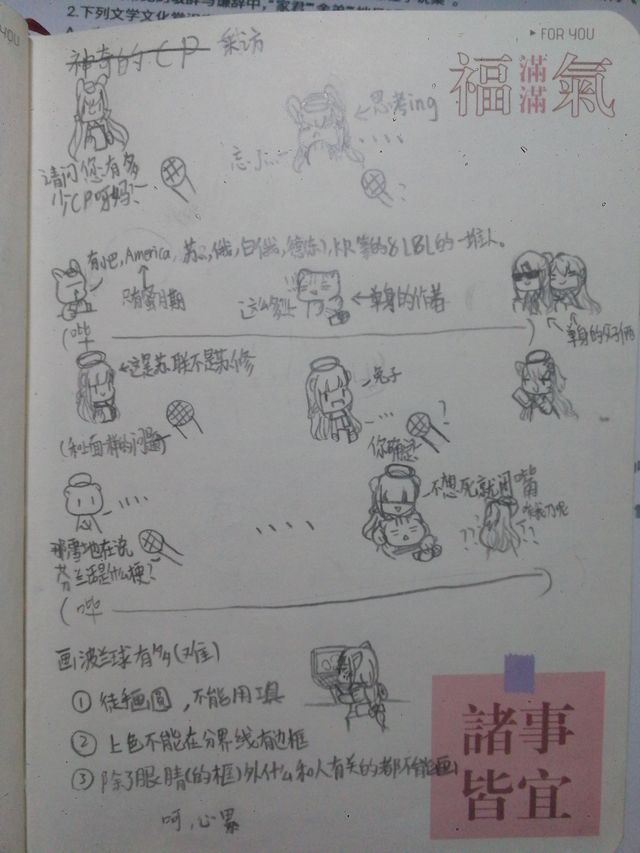 2.下列文学文化常识
FOR YOU
福滿滿氣
神奇的CP 采访
思考ing
忘了……
请问您有多少CP呀妈?
?
有巴, America, 苏, 俄, 白俄, 德东, KR 等的8LBL的一堆人。
只有蜜月期
这么多
单身的作者
单身的父子俩
(哔 )
这是苏联不是苏修
兔子
…
?
(和上面一样的问题)
你确定
不想死就闭嘴
??
??
那雪地在说芬兰话是什么梗?
(哔 )
画波兰球有多(难)
① 徒手画圆,不能用工具
② 上色不能在分界线有边框
③ 除了眼睛(的框)外什么和人有关的都不能画
呵,心累
諸事皆宜